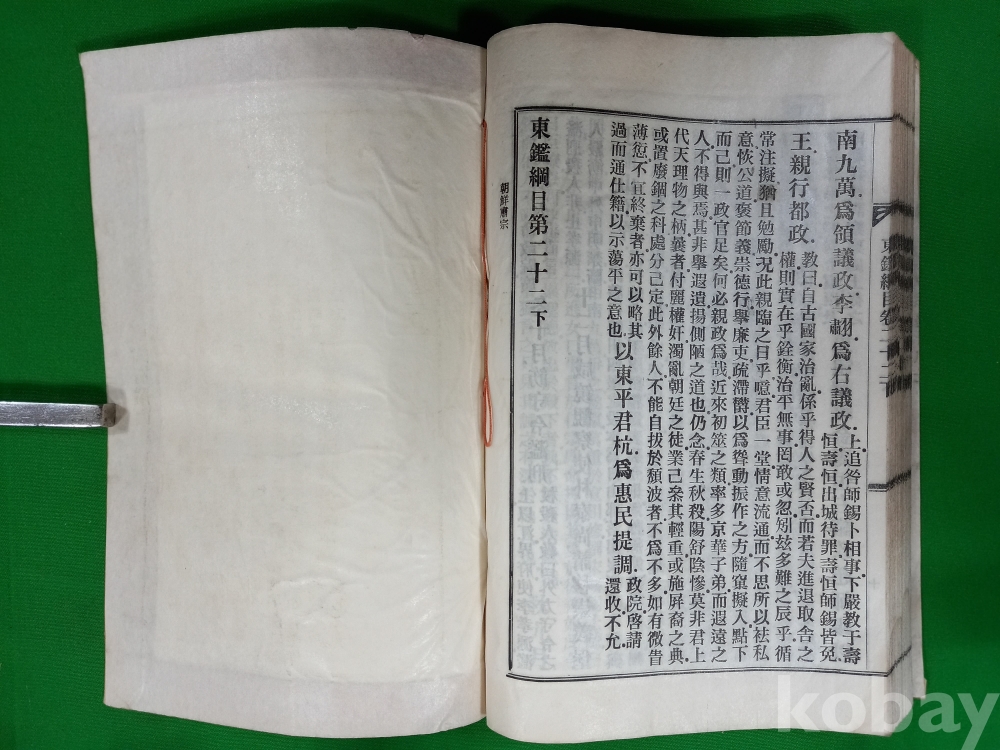 東鑑綱目卷二十二
南九萬爲領議政李䎘爲右議政
上追咎師錫卜相事下嚴教于壽
恒壽恒出城待罪壽恒師錫皆免
王親行都政
教曰自古國家治亂係乎得人之賢否而若夫進退取舍之
權則實在乎銓衡治平無事罔敢或忽矧玆多難之辰乎循
常注擬猶且勉勵况此親臨之日乎噫君臣一堂情意流通而不思所以祛私
意恢公道褒節義崇德行擧廉吏疏滯欝以爲聳動振作之方隨窠擬入點下
而已則一政官足矣何必親政爲哉近來初筮之類率多京華子弟而遐遠之
人不得與焉甚非擧遐遺揚側陋之道也仍念春生秋殺陽舒陰慘莫非君上
代天理物之柄曩者付麗權奸濁亂朝廷之徒業已叅其輕重或施屛裔之典
或置廢錮之科處分已定此外餘人不能自拔於頽波者不爲不多如有微眚
薄愆不宜終棄者亦可以略其
過而通仕籍以示蕩平之意也
以東平君杭爲惠民提調
政院啓請
還收不允
東鑑綱目第二十二下
朝鮮肅宗
kobay